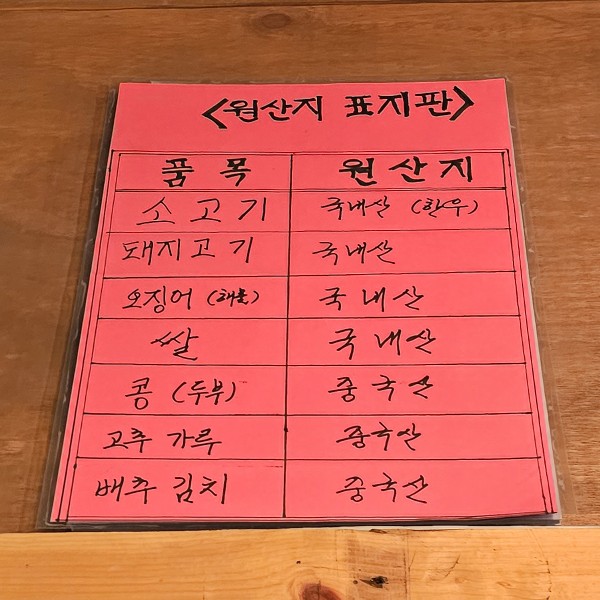 <원산지 표지판>
품목 원산지
소고기 국내산 (한우)
돼지고기 국내산
오징어 (해물) 국내산
쌀 국내산
콩 (두부) 중국산
고추 가루 중국산
배추 김치 중국산